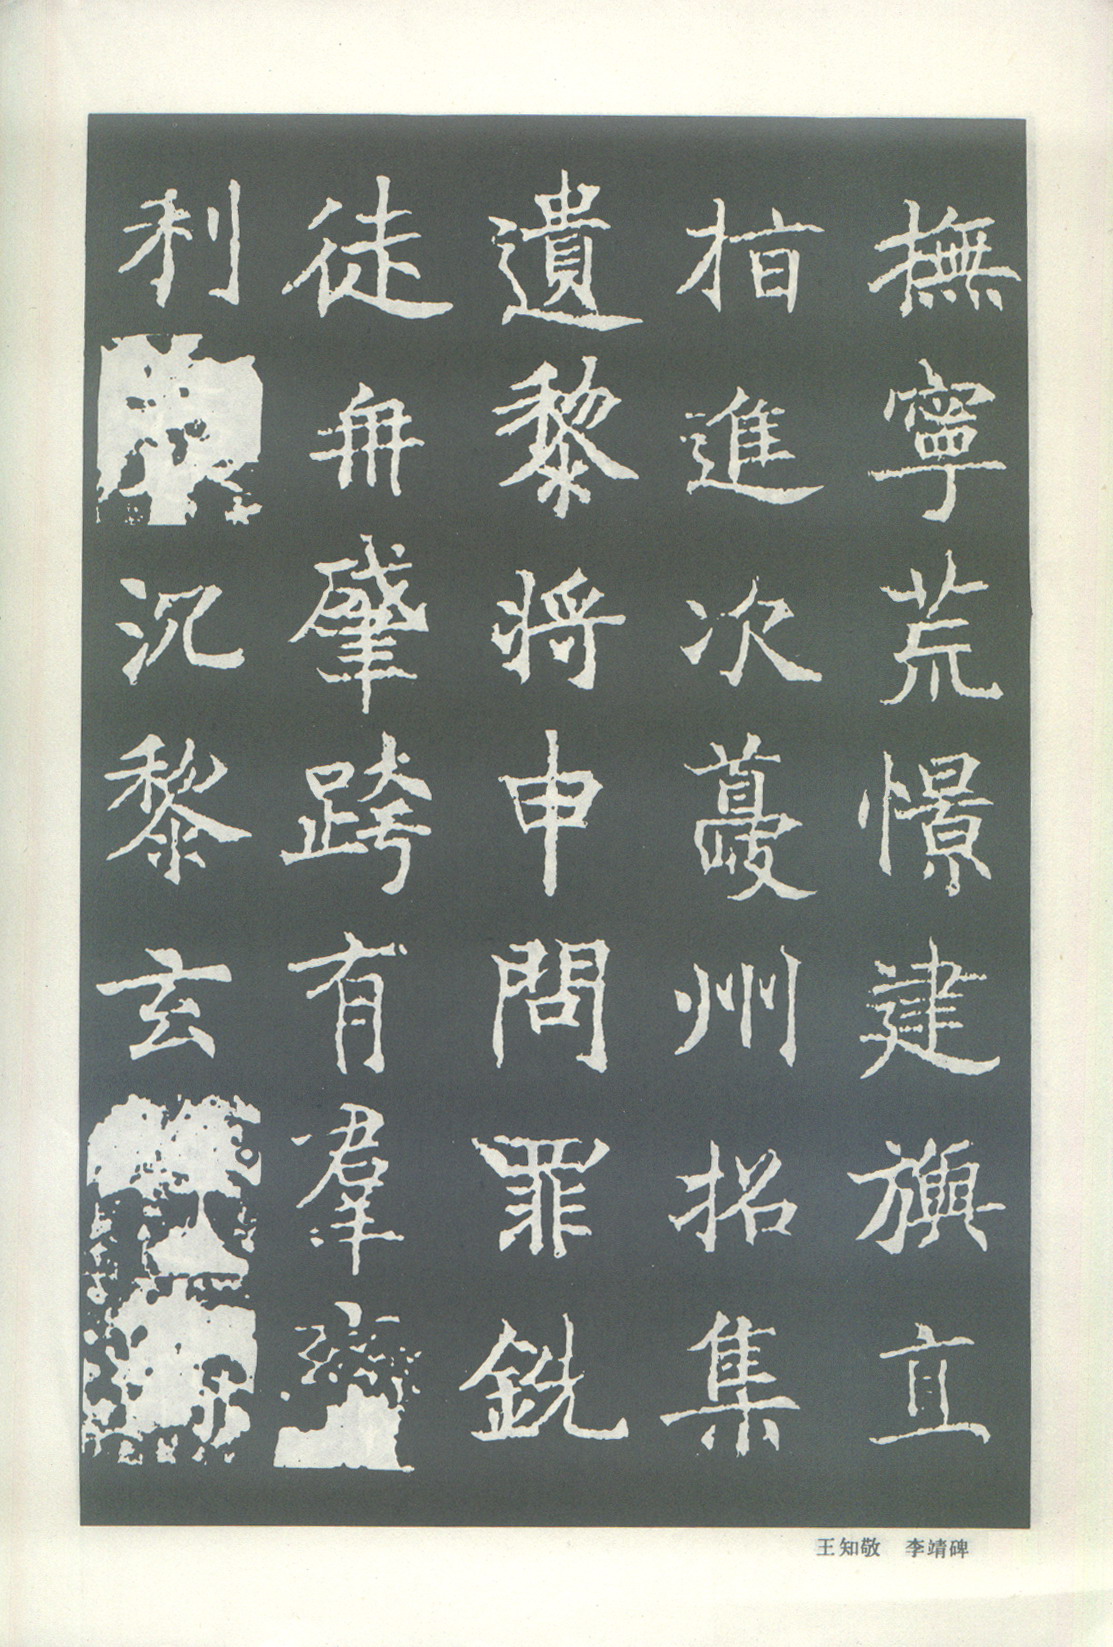 撫寧荒憬建旟直
指進次夔州招集
遺黎將申問罪銑
徒肇跨有羣
利沉黎玄
王知敬 李靖碑